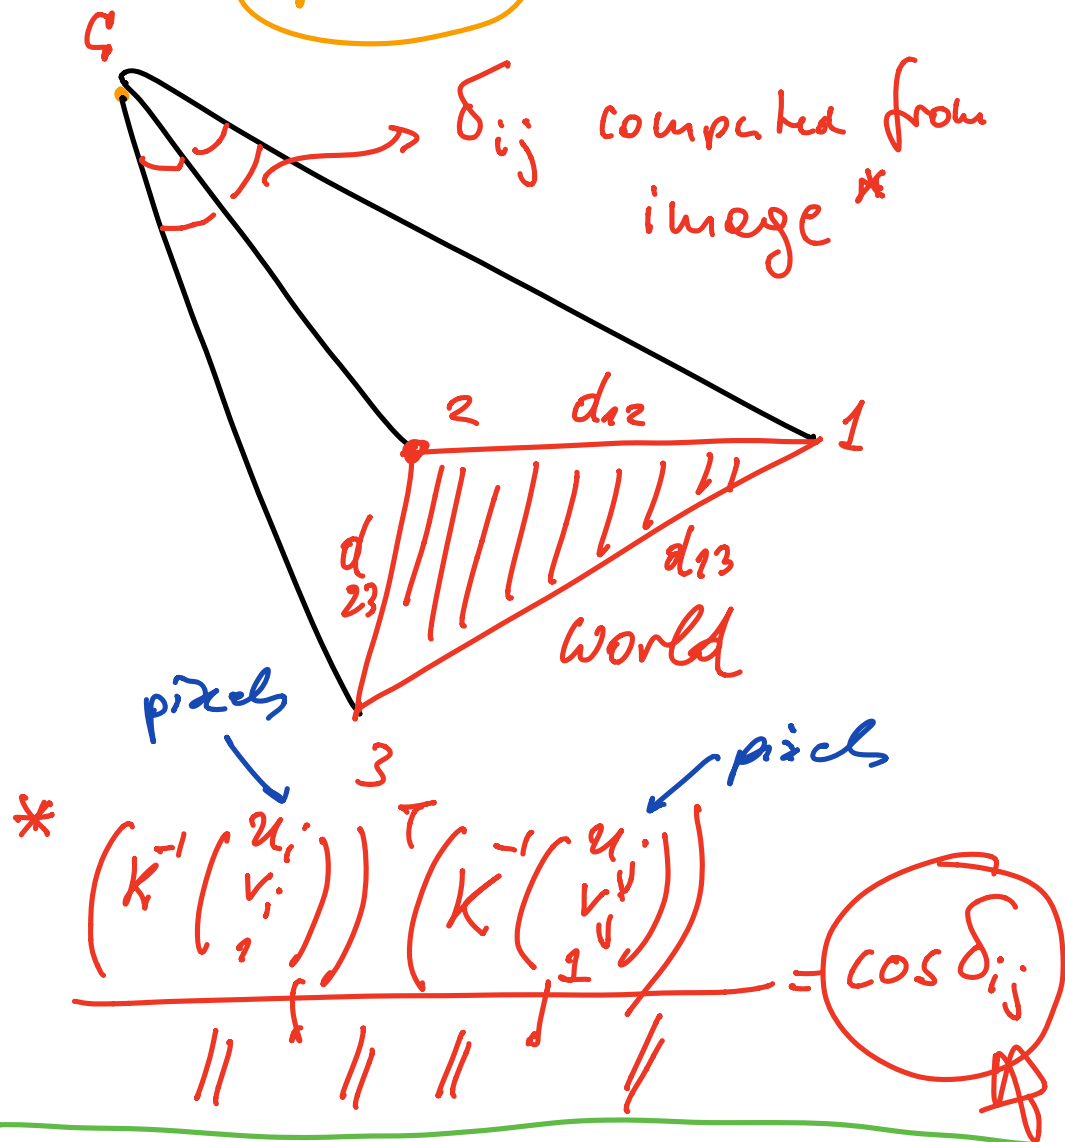 C
δij computed from
image *
2 d12 1
d23
d13
world
pixels
pixels
3
* (K⁻¹ (ui vi 1))ᵀ (K⁻¹ (uj vj 1)) = cos δij
|| || || ||